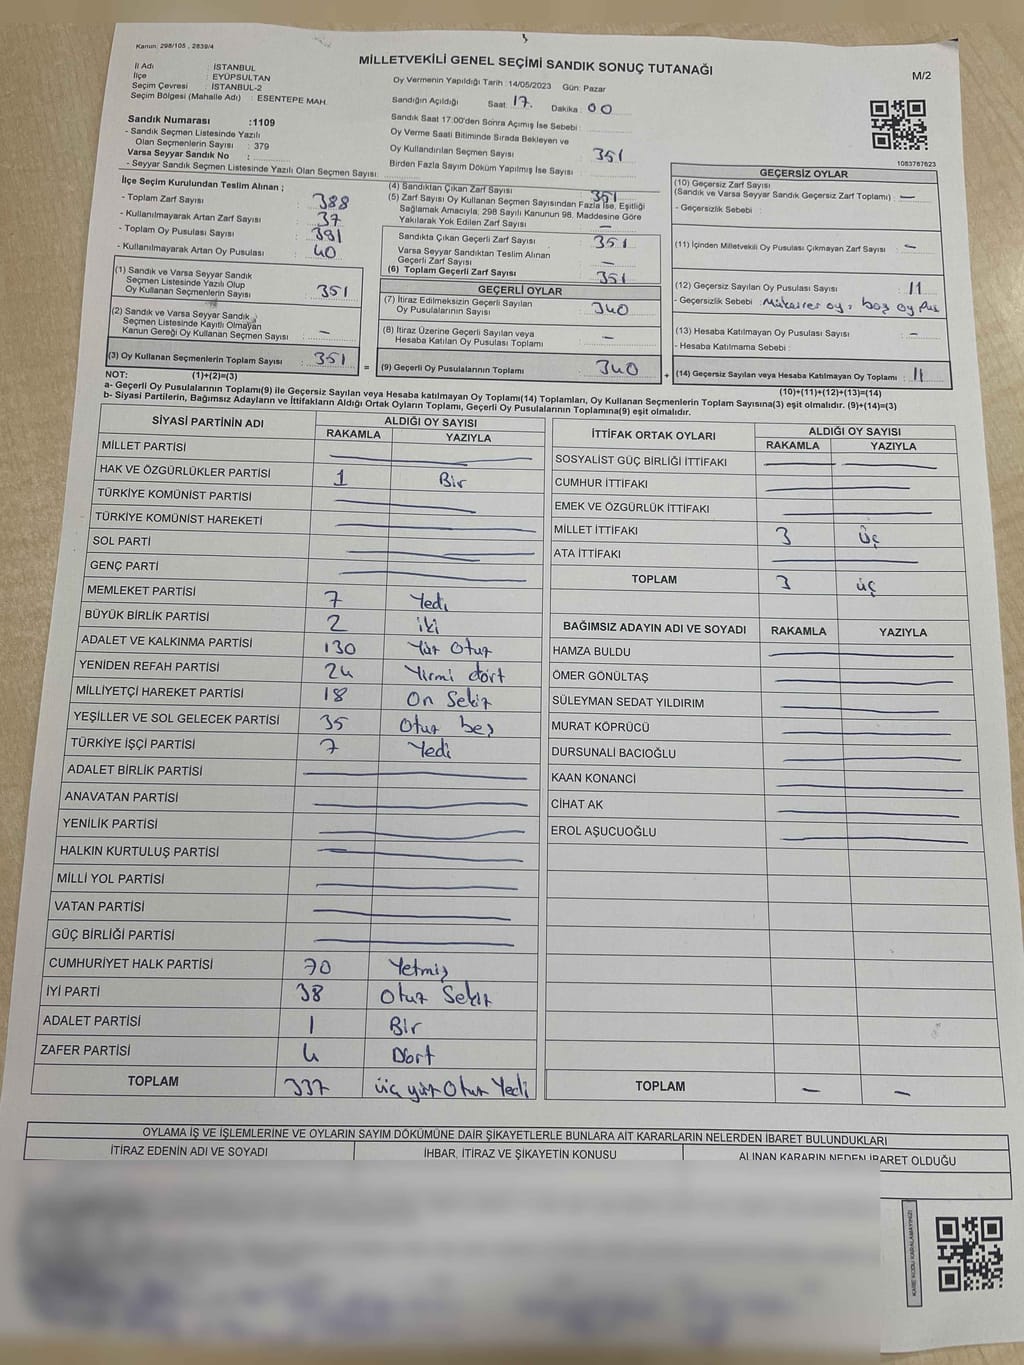 Kanun: 298/105 , 2839/4
MİLLETVEKİLİ GENEL SEÇİMİ SANDIK SONUÇ TUTANAĞI
M/2
İl Adı : İSTANBUL
İlçe : EYÜPSULTAN
Seçim Çevresi : İSTANBUL-2
Seçim Bölgesi (Mahalle Adı) : ESENTEPE MAH.
Oy Vermenin Yapıldığı Tarih : 14/05/2023 Gün: Pazar
Sandığın Açıldığı Saat: 17. Dakika : 00
Sandık Saat 17:00'den Sonra Açımış İse Sebebi :
Oy Verme Saati Bitiminde Sırada Bekleyen ve
Oy Kullandırılan Seçmen Sayısı 351
Birden Fazla Sayım Döküm Yapılmış İse Sayısı :
Sandık Numarası :1109
- Sandık Seçmen Listesinde Yazılı
Olan Seçmenlerin Sayısı : 379
Varsa Seyyar Sandık No :
- Seyyar Sandık Seçmen Listesinde Yazılı Olan Seçmen Sayısı:
1083787623
İlçe Seçim Kurulundan Teslim Alınan ;
- Toplam Zarf Sayısı : 388
- Kullanılmayarak Artan Zarf Sayısı : 37
- Toplam Oy Pusulası Sayısı : 391
- Kullanılmayarak Artan Oy Pusulası : 40
(1) Sandık ve Varsa Seyyar Sandık
Seçmen Listesinde Yazılı Olup
Oy Kullanan Seçmenlerin Sayısı : 351
(2) Sandık ve Varsa Seyyar Sandık
Seçmen Listesinde Kayıtlı Olmayan
Kanun Gereği Oy Kullanan Seçmen Sayısı : –
(3) Oy Kullanan Seçmenlerin Toplam Sayısı : 351
(4) Sandıktan Çıkan Zarf Sayısı 351
(5) Zarf Sayısı Oy Kullanan Seçmen Sayısından Fazla İse, Eşitliği
Sağlamak Amacıyla, 298 Sayılı Kanunun 98. Maddesine Göre
Yakılarak Yok Edilen Zarf Sayısı –
Sandıkta Çıkan Geçerli Zarf Sayısı 351
Varsa Seyyar Sandıktan Teslim Alınan
Geçerli Zarf Sayısı –
(6) Toplam Geçerli Zarf Sayısı 351
GEÇERLİ OYLAR
(7) İtiraz Edilmeksizin Geçerli Sayılan
Oy Pusulalarının Sayısı: 340
(8) İtiraz Üzerine Geçerli Sayılan veya
Hesaba Katılan Oy Pusulası Toplamı –
= (9) Geçerli Oy Pusulalarının Toplamı 340
GEÇERSİZ OYLAR
(10) Geçersiz Zarf Sayısı
(Sandık ve Varsa Seyyar Sandık Geçersiz Zarf Toplamı) : –
- Geçersizlik Sebebi :
(11) İçinden Milletvekili Oy Pusulası Çıkmayan Zarf Sayısı : –
(12) Geçersiz Sayılan Oy Pusulası Sayısı : 11
- Geçersizlik Sebebi : Mükerrer oy, boş oy pus
(13) Hesaba Katılmayan Oy Pusulası Sayısı : –
- Hesaba Katılmama Sebebi :
+ (14) Geçersiz Sayılan veya Hesaba Katılmayan Oy Toplamı : 11
NOT: (1)+(2)=(3)
(10)+(11)+(12)+(13)=(14)
a- Geçerli Oy Pusulalarının Toplamı(9) ile Geçersiz Sayılan veya Hesaba katılmayan Oy Toplamı(14) Toplamları, Oy Kullanan Seçmenlerin Toplam Sayısına(3) eşit olmalıdır. (9)+(14)=(3)
b- Siyasi Partilerin, Bağımsız Adayların ve İttifakların Aldığı Ortak Oyların Toplamı, Geçerli Oy Pusulalarının Toplamına(9) eşit olmalıdır.
SİYASİ PARTİNİN ADI ALDIĞI OY SAYISI
RAKAMLA YAZIYLA
MİLLET PARTİSİ
HAK VE ÖZGÜRLÜKLER PARTİSİ 1 Bir
TÜRKİYE KOMÜNİST PARTİSİ
TÜRKİYE KOMÜNİST HAREKETİ
SOL PARTİ
GENÇ PARTİ
MEMLEKET PARTİSİ 7 Yedi
BÜYÜK BİRLİK PARTİSİ 2 iki
ADALET VE KALKINMA PARTİSİ 130 Yüz Otuz
YENİDEN REFAH PARTİSİ 24 Yirmi dört
MİLLİYETÇİ HAREKET PARTİSİ 18 On Sekiz
YEŞİLLER VE SOL GELECEK PARTİSİ 35 Otuz beş
TÜRKİYE İŞÇİ PARTİSİ 7 Yedi
ADALET BİRLİK PARTİSİ
ANAVATAN PARTİSİ
YENİLİK PARTİSİ
HALKIN KURTULUŞ PARTİSİ
MİLLİ YOL PARTİSİ
VATAN PARTİSİ
GÜÇ BİRLİĞİ PARTİSİ
CUMHURİYET HALK PARTİSİ 70 Yetmiş
İYİ PARTİ 38 Otuz Sekiz
ADALET PARTİSİ 1 Bir
ZAFER PARTİSİ 4 Dört
TOPLAM 337 üç yüz Otuz Yedi
İTTİFAK ORTAK OYLARI ALDIĞI OY SAYISI
RAKAMLA YAZIYLA
SOSYALİST GÜÇ BİRLİĞİ İTTİFAKI
CUMHUR İTTİFAKI
EMEK VE ÖZGÜRLÜK İTTİFAKI
MİLLET İTTİFAKI 3 Üç
ATA İTTİFAKI
TOPLAM 3 üç
BAĞIMSIZ ADAYIN ADI VE SOYADI RAKAMLA YAZIYLA
HAMZA BULDU
ÖMER GÖNÜLTAŞ
SÜLEYMAN SEDAT YILDIRIM
MURAT KÖPRÜCÜ
DURSUNALİ BACIOĞLU
KAAN KONANCİ
CİHAT AK
EROL AŞUCUOĞLU
TOPLAM – –
OYLAMA İŞ VE İŞLEMLERİNE VE OYLARIN SAYIM DÖKÜMÜNE DAİR ŞİKAYETLERLE BUNLARA AİT KARARLARIN NELERDEN İBARET BULUNDUKLARI
İTİRAZ EDENİN ADI VE SOYADI İHBAR, İTİRAZ VE ŞİKAYETİN KONUSU ALINAN KARARIN NEDEN İBARET OLDUĞU
KARE KODU KARALAMAYINIZ!